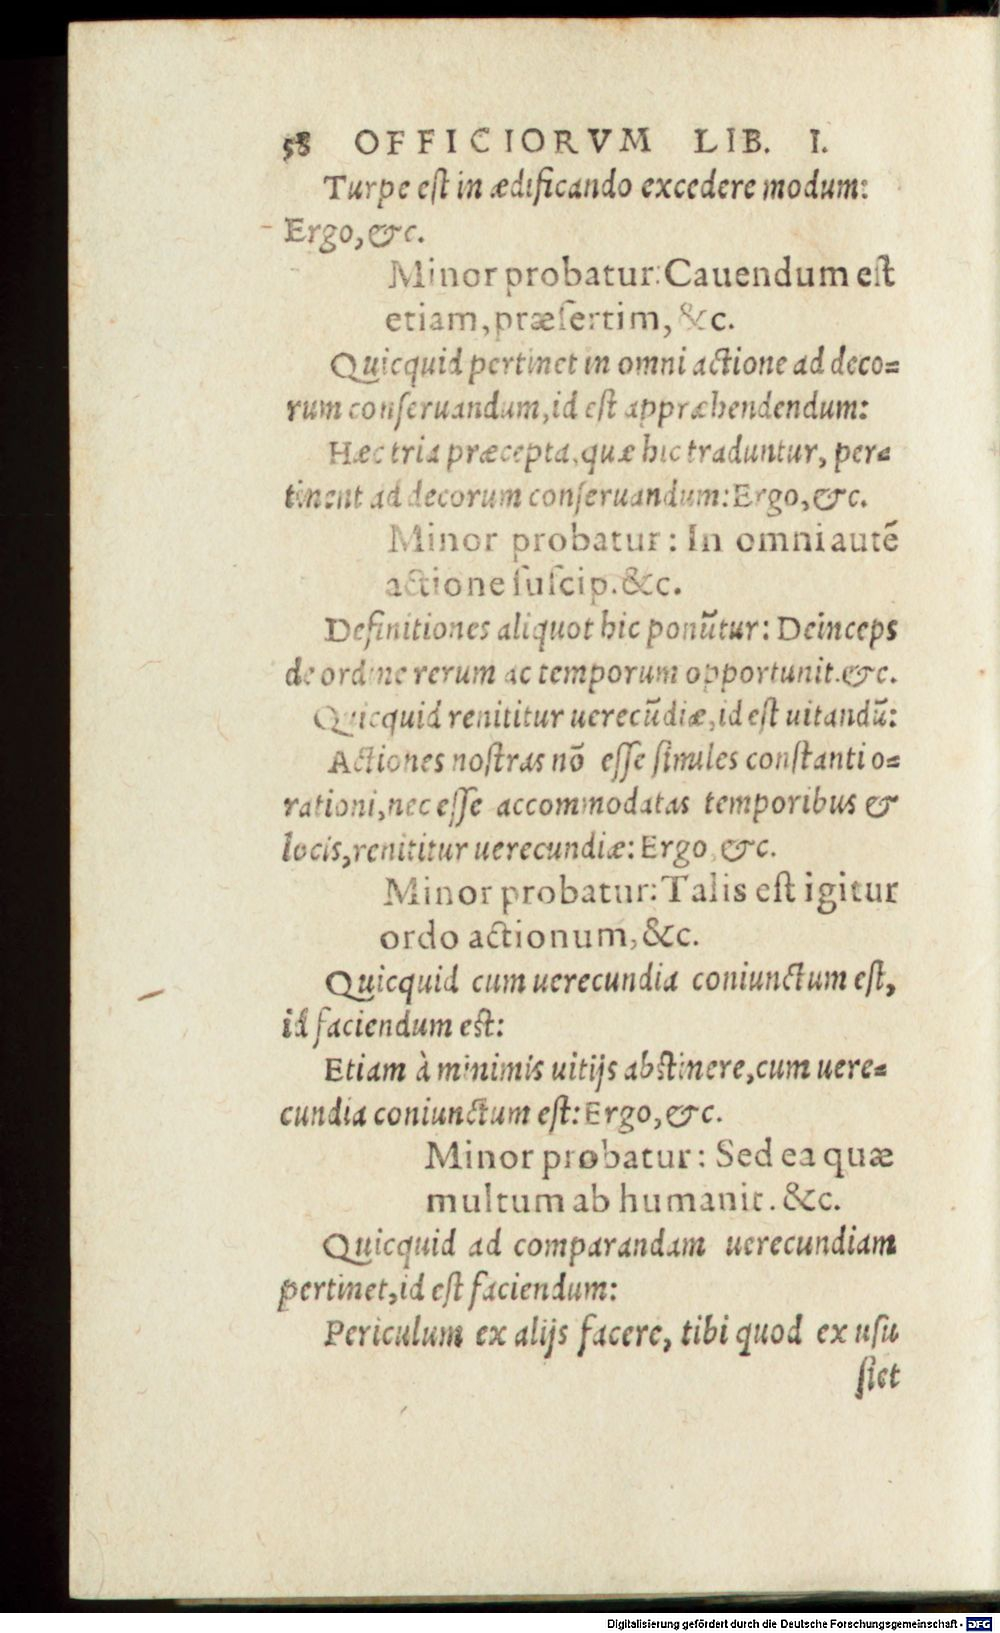 58 OFFICIORVM LIB. I.
Turpe eſt in ædificando excedere modum:
Ergo, &c.
Minor probatur: Cauendum eſt
etiam, præſertim, &c.
Quicquid pertinet in omni actione ad deco=
rum conſeruandum, id eſt appræhendendum:
Hæc tria præcepta, quæ hic traduntur, per=
tinent ad decorum conſeruandum: Ergo, &c.
Minor probatur: In omni autē
actione ſuſcip. &c.
Definitiones aliquot hic ponūtur: Deinceps
de ordine rerum ac temporum opportunit. &c.
Quicquid renititur uerecūdiæ, id eſt uitandū:
Actiones noſtras nō eſſe ſimiles conſtanti o=
rationi, nec eſſe accommodatas temporibus &
locis, renititur uerecundiæ: Ergo, &c.
Minor probatur: Talis eſt igitur
ordo actionum, &c.
Quicquid cum uerecundia coniunctum eſt,
id faciendum eſt:
Etiam à minimis uitijs abſtinere, cum uere=
cundia coniunctum eſt: Ergo, &c.
Minor probatur: Sed ea quæ
multum ab humanit. &c.
Quicquid ad comparandam uerecundiam
pertinet, id eſt faciendum:
Periculum ex alijs facere, tibi quod ex uſu
ſiet
Digitalisierung gefördert durch die Deutsche Forschungsgemeinschaft - DFG